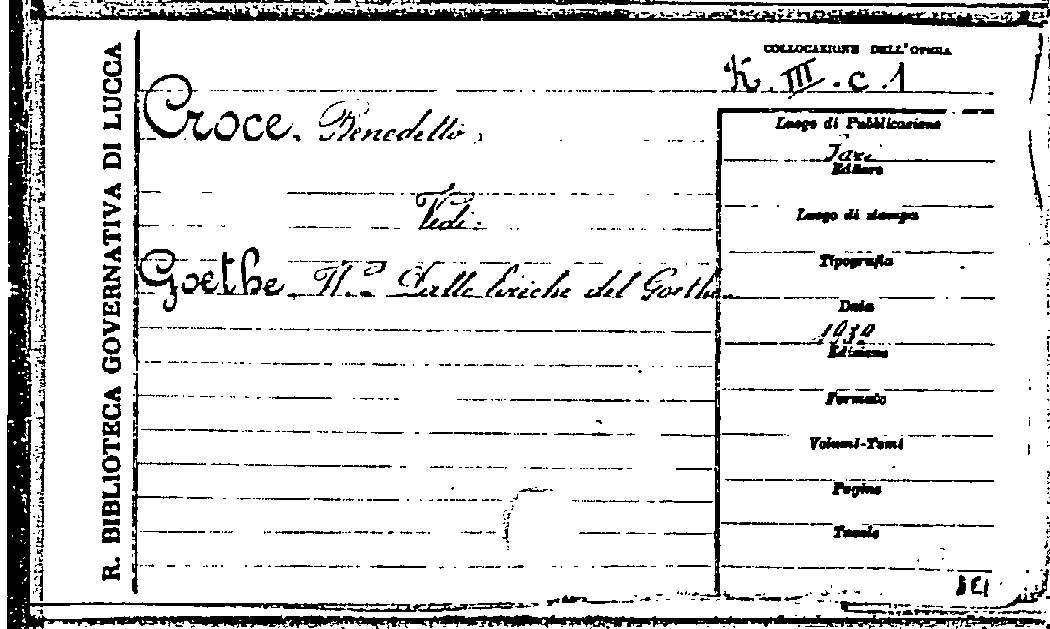 R. BIBLIOTECA GOVERNATIVA DI LUCCA
COLLOCAZIONE DELL'OPERA
K. III. c. 1
Croce. Benedetto.
Vedi:
Goethe. Dalle liriche del Goethe.
Luogo di Pubblicazione
Editore
Luogo di stampa
Tipografia
Data
Edizione
Formato
Volumi-Tomi
Pagine
Tavole